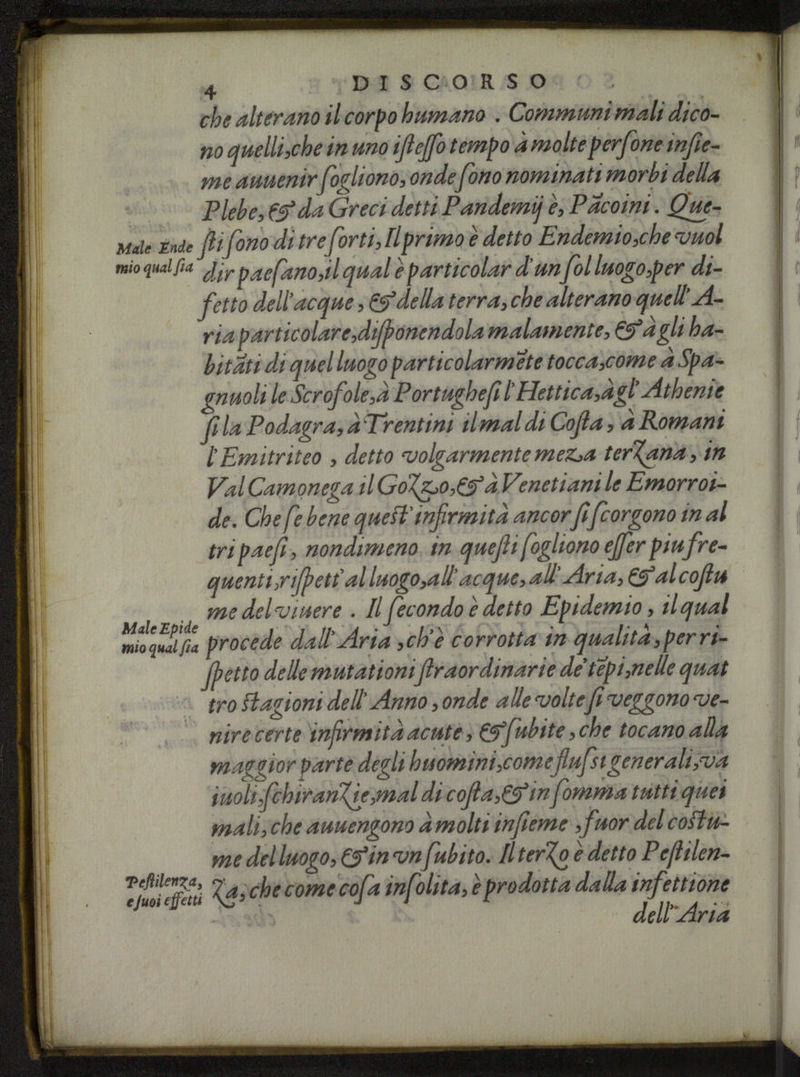 4 DISCORSO
che alterano il corpo humano . Communi mali dico-
no quelli,che in uno iſteſſo tempo à molte perſone inſie-
me auuenir ſogliono, onde ſono nominati morbi della
Plebe, & da Greci detti Pandemij è, Pãcoini. Que-
Male Ende
mio qual ſia
ſti ſono di tre ſorti, Il primo è detto Endemio,che vuol
dir paeſano,il qual è particolar d'un ſol luogo,per di-
fetto dell'acque , & della terra, che alterano quell' A-
ria particolare,diſponendola malamente, & à gli ha-
bitãti di quel luogo particolarmẽte tocca,come à Spa-
gnuoli le Scrofole,à Portugheſi l'Hettica,àgl' Athenie
ſi la Podagra, à Trentini il mal di Coſta , à Romani
l'Emitriteo , detto volgarmente meza terzana, in
Val Camonega il Gozzo,& à Venetiani le Emorroi-
de. Che ſe bene queſt' infirmità ancor ſi ſcorgono in al
tri paeſi, nondimeno in queſti ſogliono eſſer piu fre-
quenti,riſpett' al luogo,all' acque, all' Aria, & al coſtu
me del viuere . Il ſecondo è detto Epidemio , il qual
Male Epide
mio qual ſia
procede dall' Aria ,ch'è corrotta in qualità,per ri-
ſpetto delle mutationi ſtraordinarie de' tẽpi,nelle quat
tro ſtagioni dell' Anno , onde alle volte ſi veggono ve-
nire certe infirmità acute , & ſubite , che tocano alla
maggior parte degli huomini,come fluſsi generali,va
iuoli,ſchiranzie,mal di coſta,& in ſomma tutti quei
mali, che auuengono à molti inſieme ,fuor del coſtu-
me del luogo, & in vn ſubito. Il terzo è detto Peſtilen-
Peſtilenza,
e ſuoi effetti
za, che come coſa inſolita, è prodotta dalla infettione
dell' Aria